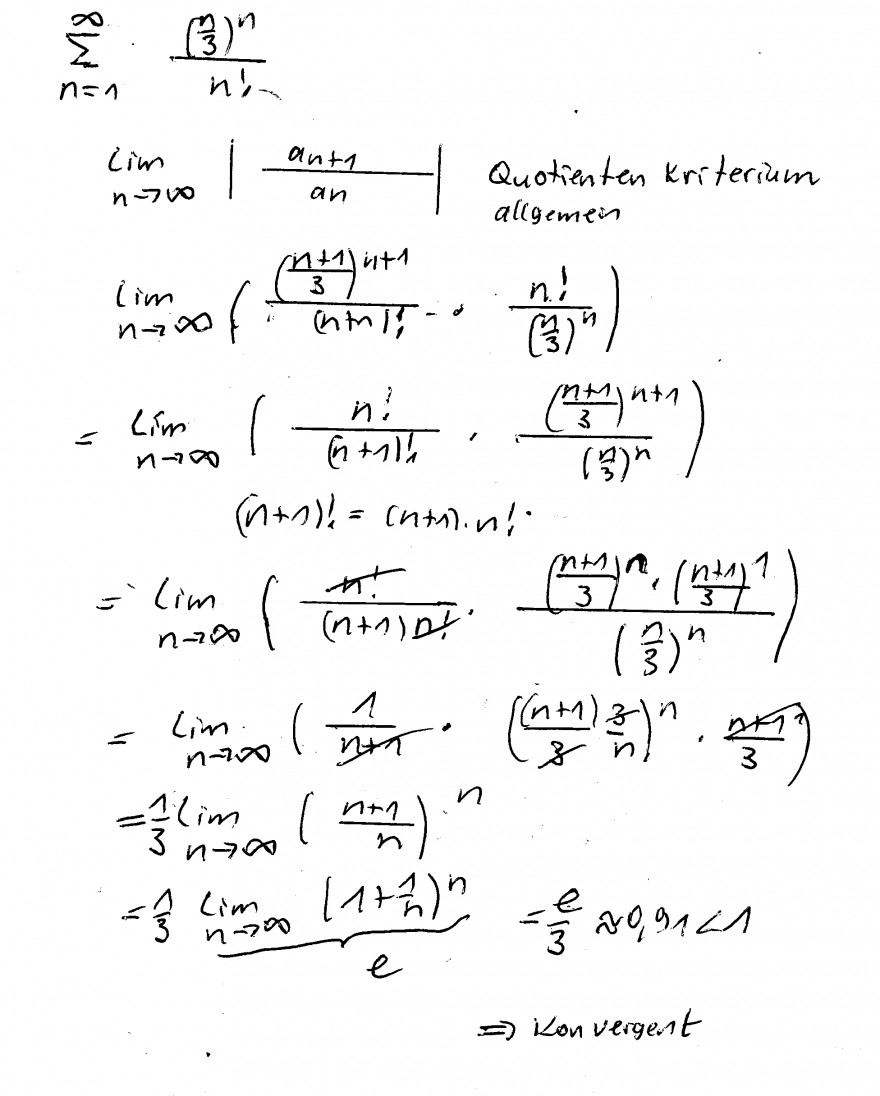 ∞ ∑ n=1 (n/3)^n / n!
lim n→∞ | an+1 / an | Quotienten Kriterium allgemein
lim n→∞ ( ((n+1)/3)^(n+1) / (n+1)! · n! / (n/3)^n )
= lim n→∞ ( n! / (n+1)! · ((n+1)/3)^(n+1) / (n/3)^n )
(n+1)! = (n+1)·n!
= lim n→∞ ( n! / (n+1) n! · ((n+1)/3)^n · ((n+1)/3)^1 / (n/3)^n )
= lim n→∞ ( 1 / n+1 · ((n+1)/3 3/n)^n · n+1 / 3 )
= 1/3 lim n→∞ ( n+1 / n )^n
= 1/3 lim n→∞ (1+1/n)^n = e/3 ≈ 0,91 < 1
e
⇒ Konvergent